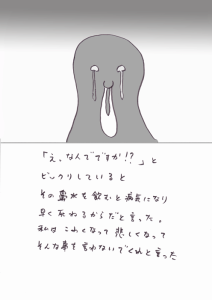 「え、なんでですか!?」と
ビックリしていると
その鼻水を飲むと病気になり
早く死ねるからだと言った。
私は こわくなって 悲しくなって
そんな事を言わないでくれと言った